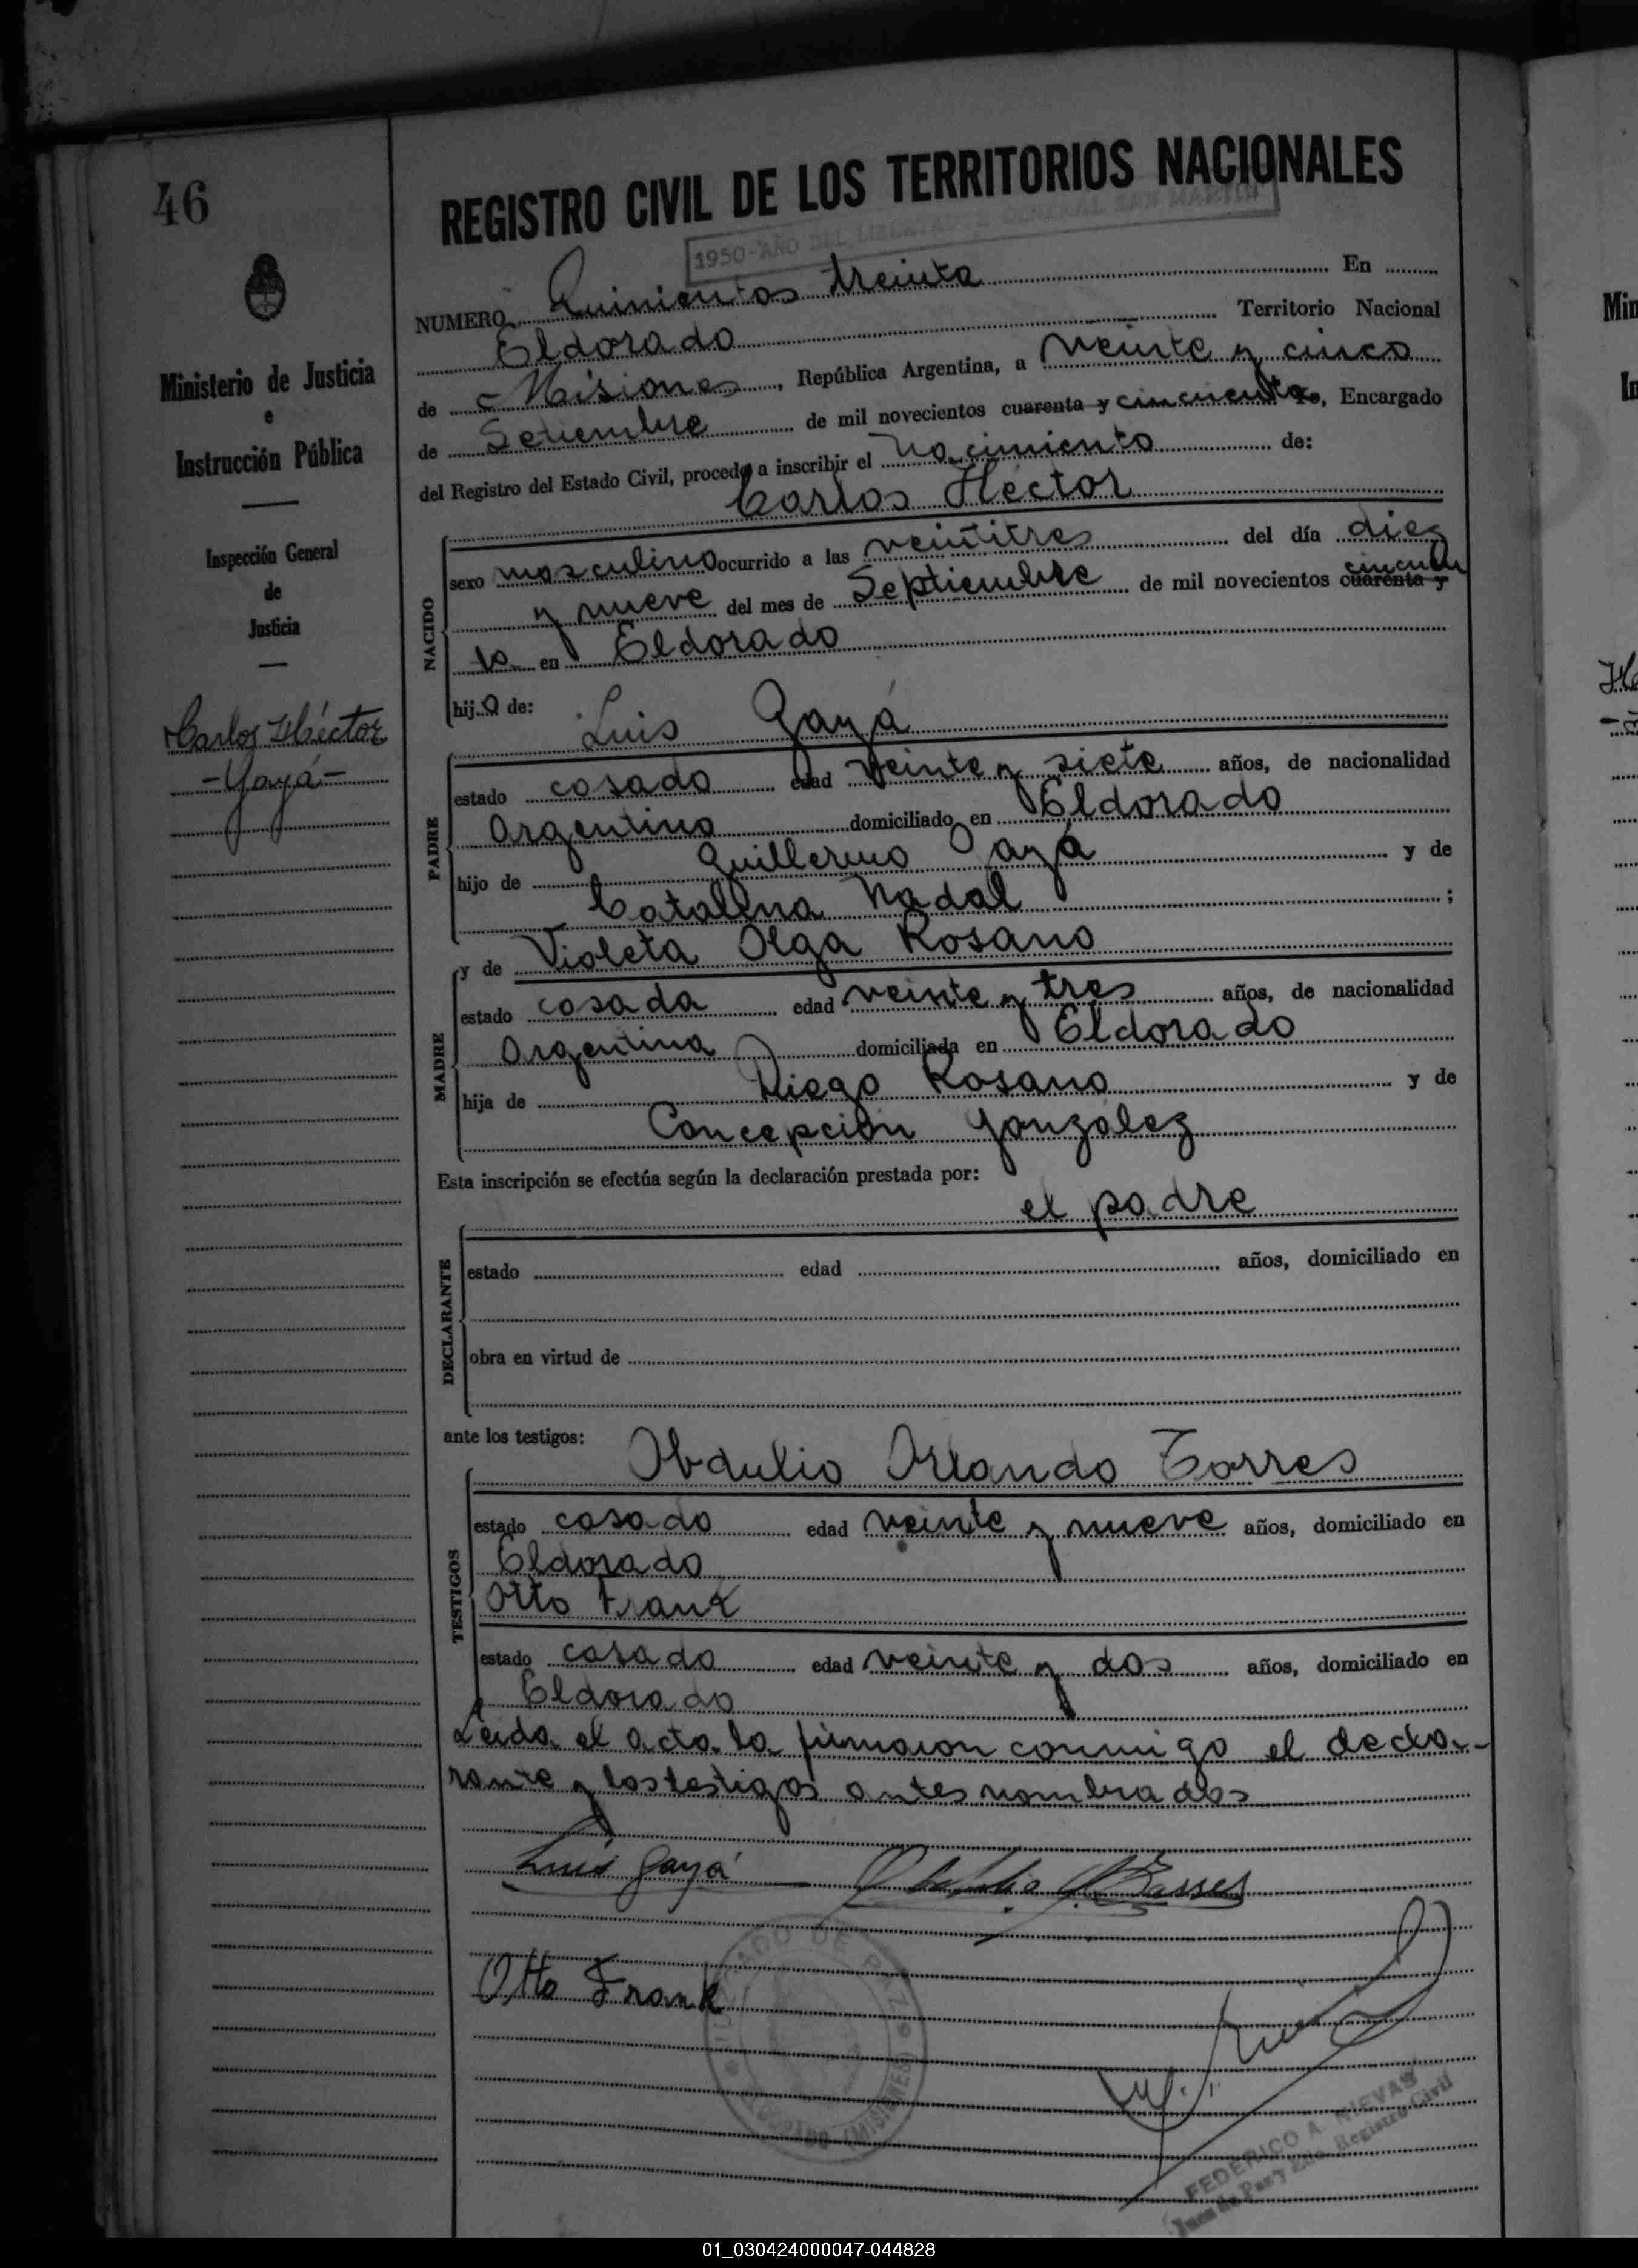 46
REGISTRO CIVIL DE LOS TERRITORIOS NACIONALES
1950-AÑO DEL LIBERTADOR GENERAL SAN MARTIN
NUMERO Quinientos treinta En
Eldorado Territorio Nacional
de Misiones, República Argentina, a veinte y cinco
de Setiembre de mil novecientos cuarenta y cincuenta Yo, Encargado
del Registro del Estado Civil, procedo a inscribir el nacimiento de:
Carlos Héctor
Ministerio de Justicia
e
Instrucción Pública
Inspección General
de
Justicia
Carlos Héctor
- Gayá -
NACIDO
sexo masculino ocurrido a las veintitres del día diez
y nueve del mes de Septiembre de mil novecientos cuarenta y cincuen
ta en Eldorado
hijo de:
Luis Gayá
PADRE
estado casado edad veinte y siete años, de nacionalidad
Argentino domiciliado en Eldorado
hijo de Guillermo Gayá y de
Catalina Nadal ;
MADRE
y de Violeta Olga Rosano
estado casada edad veinte y tres años, de nacionalidad
Argentina domiciliada en Eldorado
hija de Diego Rosano y de
Concepción González
Esta inscripción se efectúa según la declaración prestada por:
el padre
DECLARANTE
estado edad años, domiciliado en
obra en virtud de
ante los testigos:
Obdulio Orlando Torres
TESTIGOS
estado casado edad veinte y nueve años, domiciliado en
Eldorado
Otto Frank
estado casado edad veinte y dos años, domiciliado en
Eldorado
Leida el acta la firmaron conmigo el decla-
rante y los testigos antes nombrados
Luis Gayá
Otto Frank
JUZGADO DE PAZ
ELDORADO (MISIONES)
FEDERICO A. NIEVAS
Juez de Paz y Enc. Registro Civil
01_030424000047-044828